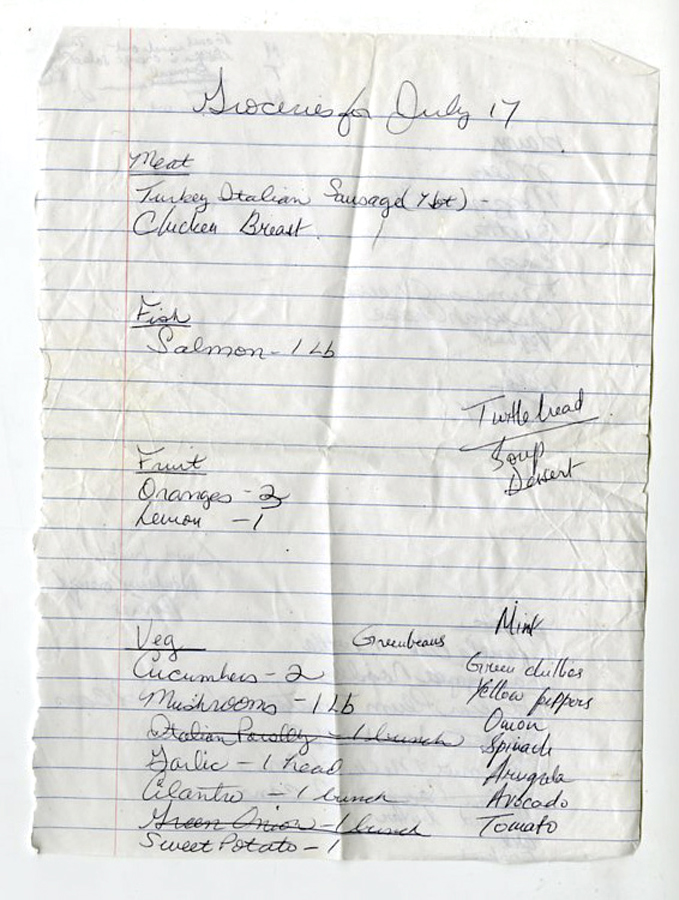 Groceries for July 17
Meat
Turkey Italian Sausage (Hot) -
Chicken Breast
Fish
Salmon - 1 Lb
Turtle bead
Soup
Desert
Fruit
Oranges - 2
Lemon - 1
Veg
Cucumbers - 2
Mushrooms - 1 Lb
Italian Parsley - 1 bunch
Garlic - 1 head
Cilantro - 1 bunch
Green Onion - 1 bunch
Sweet Potato - 1
Greenbeans
Mint
Green chillies
Yellow peppers
Onion
Spinach
Arugula
Avocado
Tomato